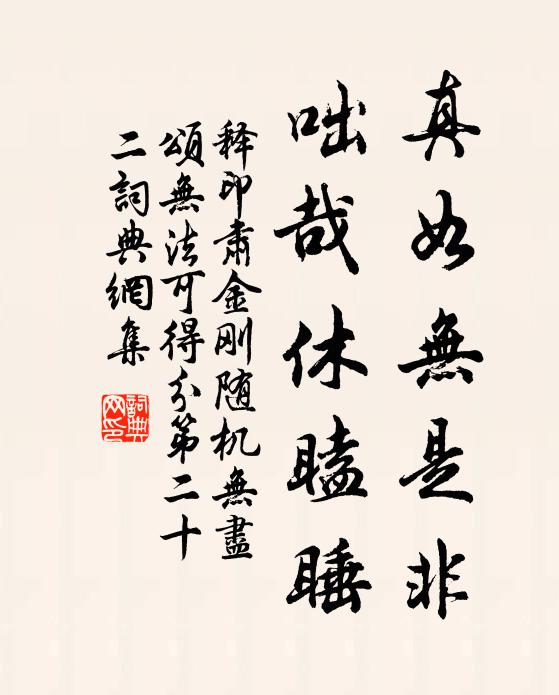 真如無是非
咄哉休瞌睡
释印肃金刚随机無盡
頌無法可得分第二十
二詞典網集
詞典
网印